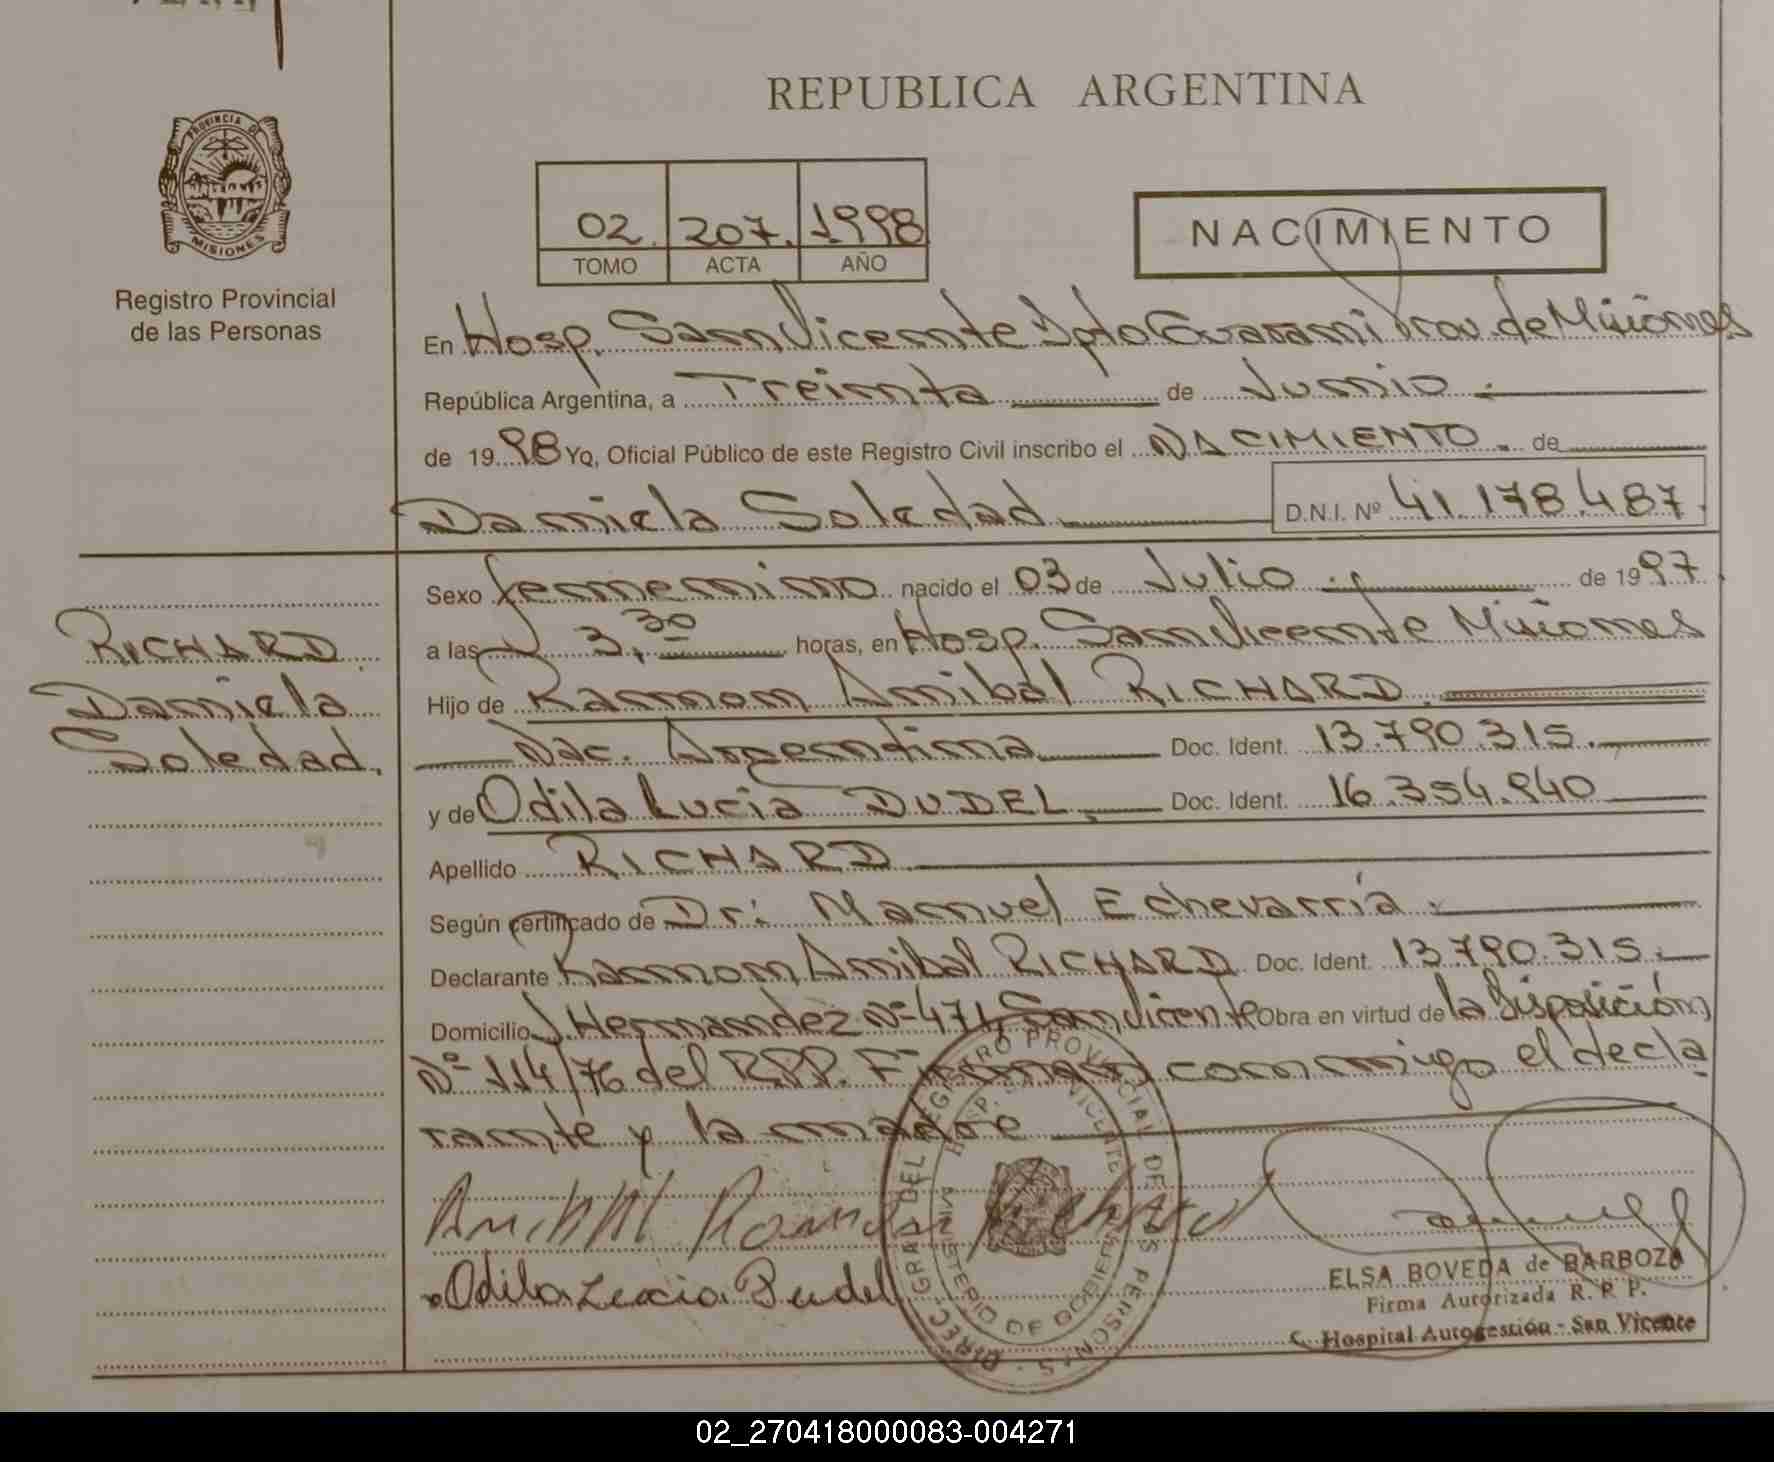 REPUBLICA ARGENTINA
PROVINCIA DE
MISIONES
Registro Provincial
de las Personas
02. 207. 1998
TOMO ACTA AÑO
NACIMIENTO
En Hosp. San Vicente Dpto Guarani Prov. de Misiones
República Argentina, a Treinta de Junio.
de 1998 Yo, Oficial Público de este Registro Civil inscribo el NACIMIENTO. de
Daniela Soledad D.N.I. Nº 41.178.487.
RICHARD
Daniela
Soledad.
Sexo femenino nacido el 03 de Julio de 1997.
a las 3,30 horas, en Hosp. San Vicente Misiones
Hijo de Ramon Anibal RICHARD
Nac. Argentina Doc. Ident. 13.790.315.
y de Odila Lucia DUDEL. Doc. Ident. 16.354.940
Apellido RICHARD
Según certificado de Dr: Manuel Echevarría.
Declarante Ramon Anibal RICHARD Doc. Ident. 13.790.315.
Domicilio J. Hernandez Nº 471, San Vicente Obra en virtud de la Disposición
Nº 114/76 del R.P.P. Firman conmigo el decla
rante y la madre
Anibal Ramon Richard
Odila Lucia Dudel
DIREC. GRAL DEL REGISTRO PROVINCIAL DE LAS PERSONAS
HOSP. VICENTE
MINISTERIO DE GOBIERNO
ELSA BOVEDA de BARBOZA
Firma Autorizada R. P. P.
Hospital Autogestión - San Vicente
02_270418000083-004271